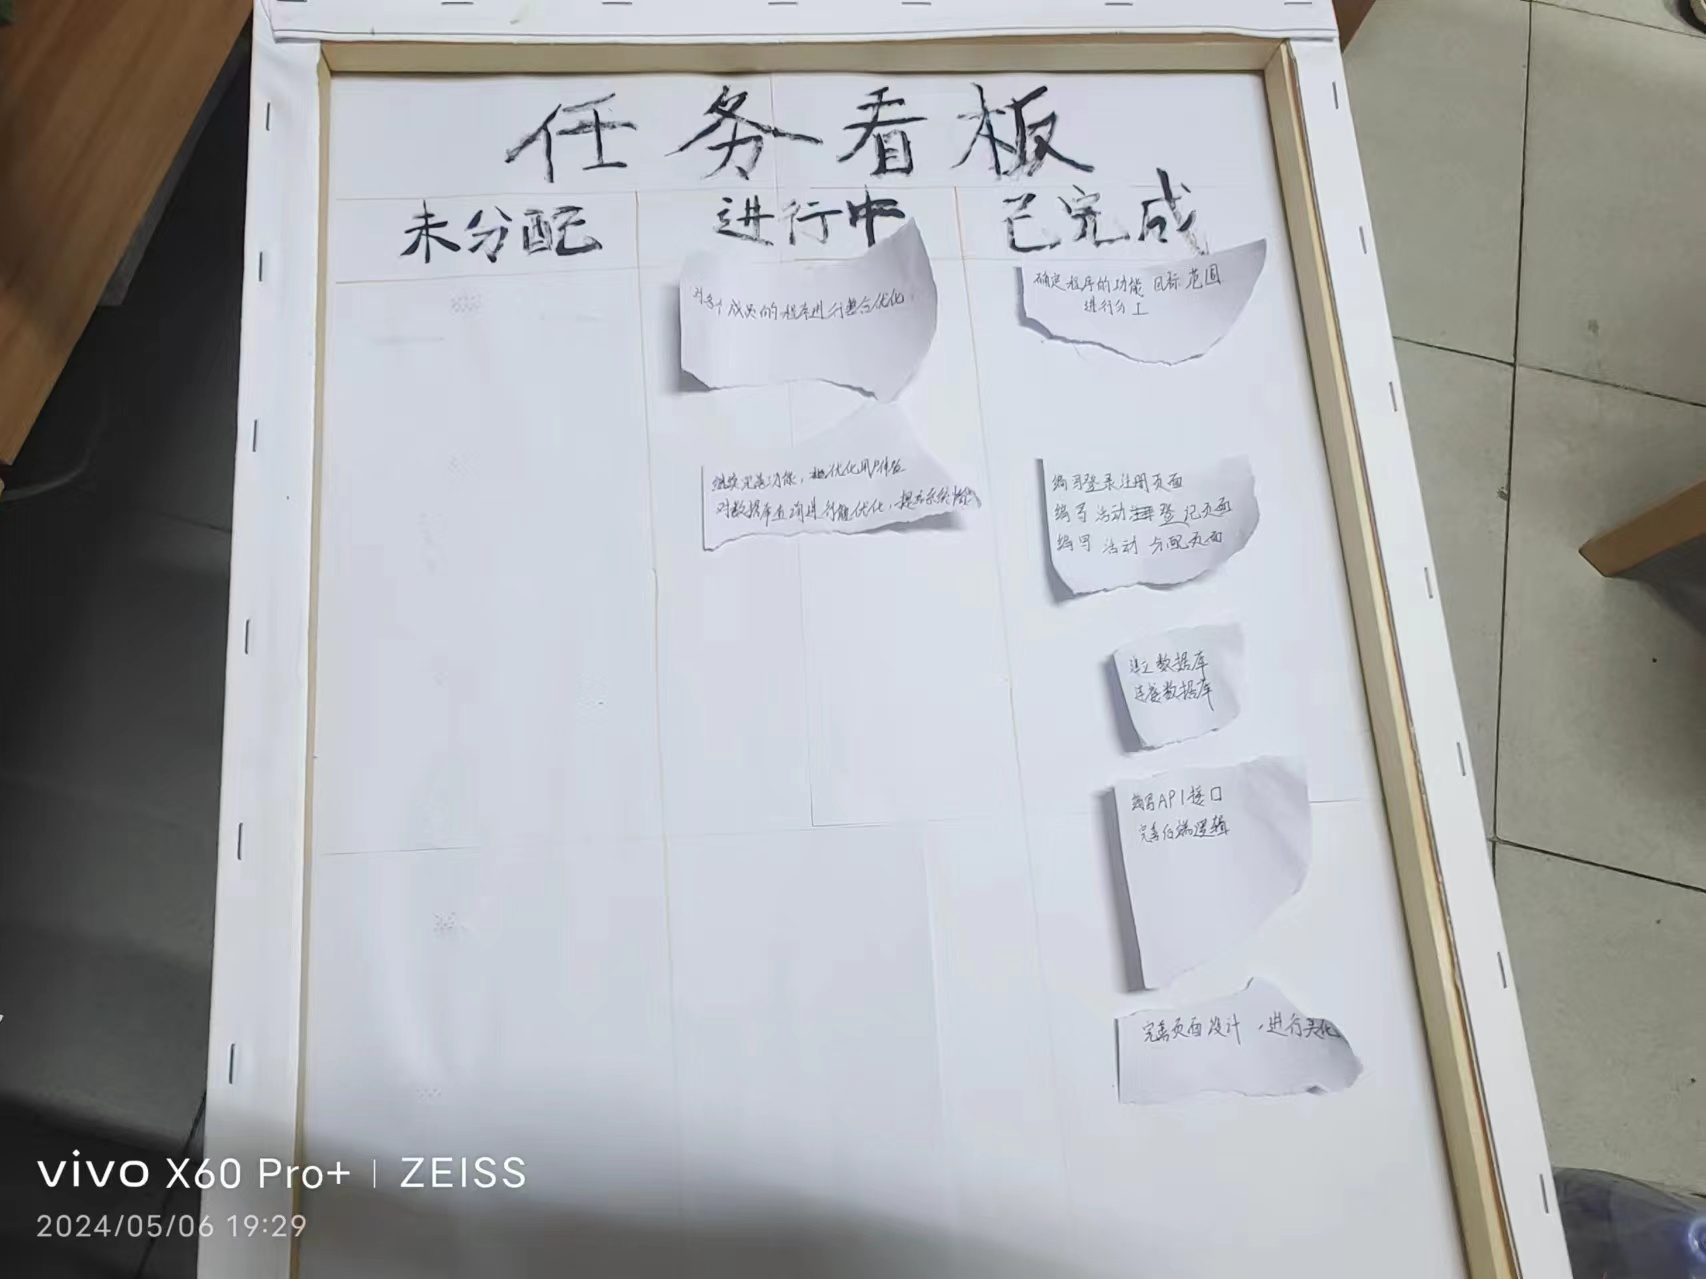 任务看板
未分配
进行中
已完成
对各个成员的程序进行整合优化
继续完善功能，优化用户体验
对数据库查询进行性能优化，提高系统性能
确定程序的功能 目标 范围
进行分工
编写登录注册页面
编写 活动 登记页面
编写 活动 分配页面
建立数据库
连接数据库
编写API接口
完善后端逻辑
完善页面设计，进行美化
vivo X60 Pro+ | ZEISS
2024/05/06 19:29